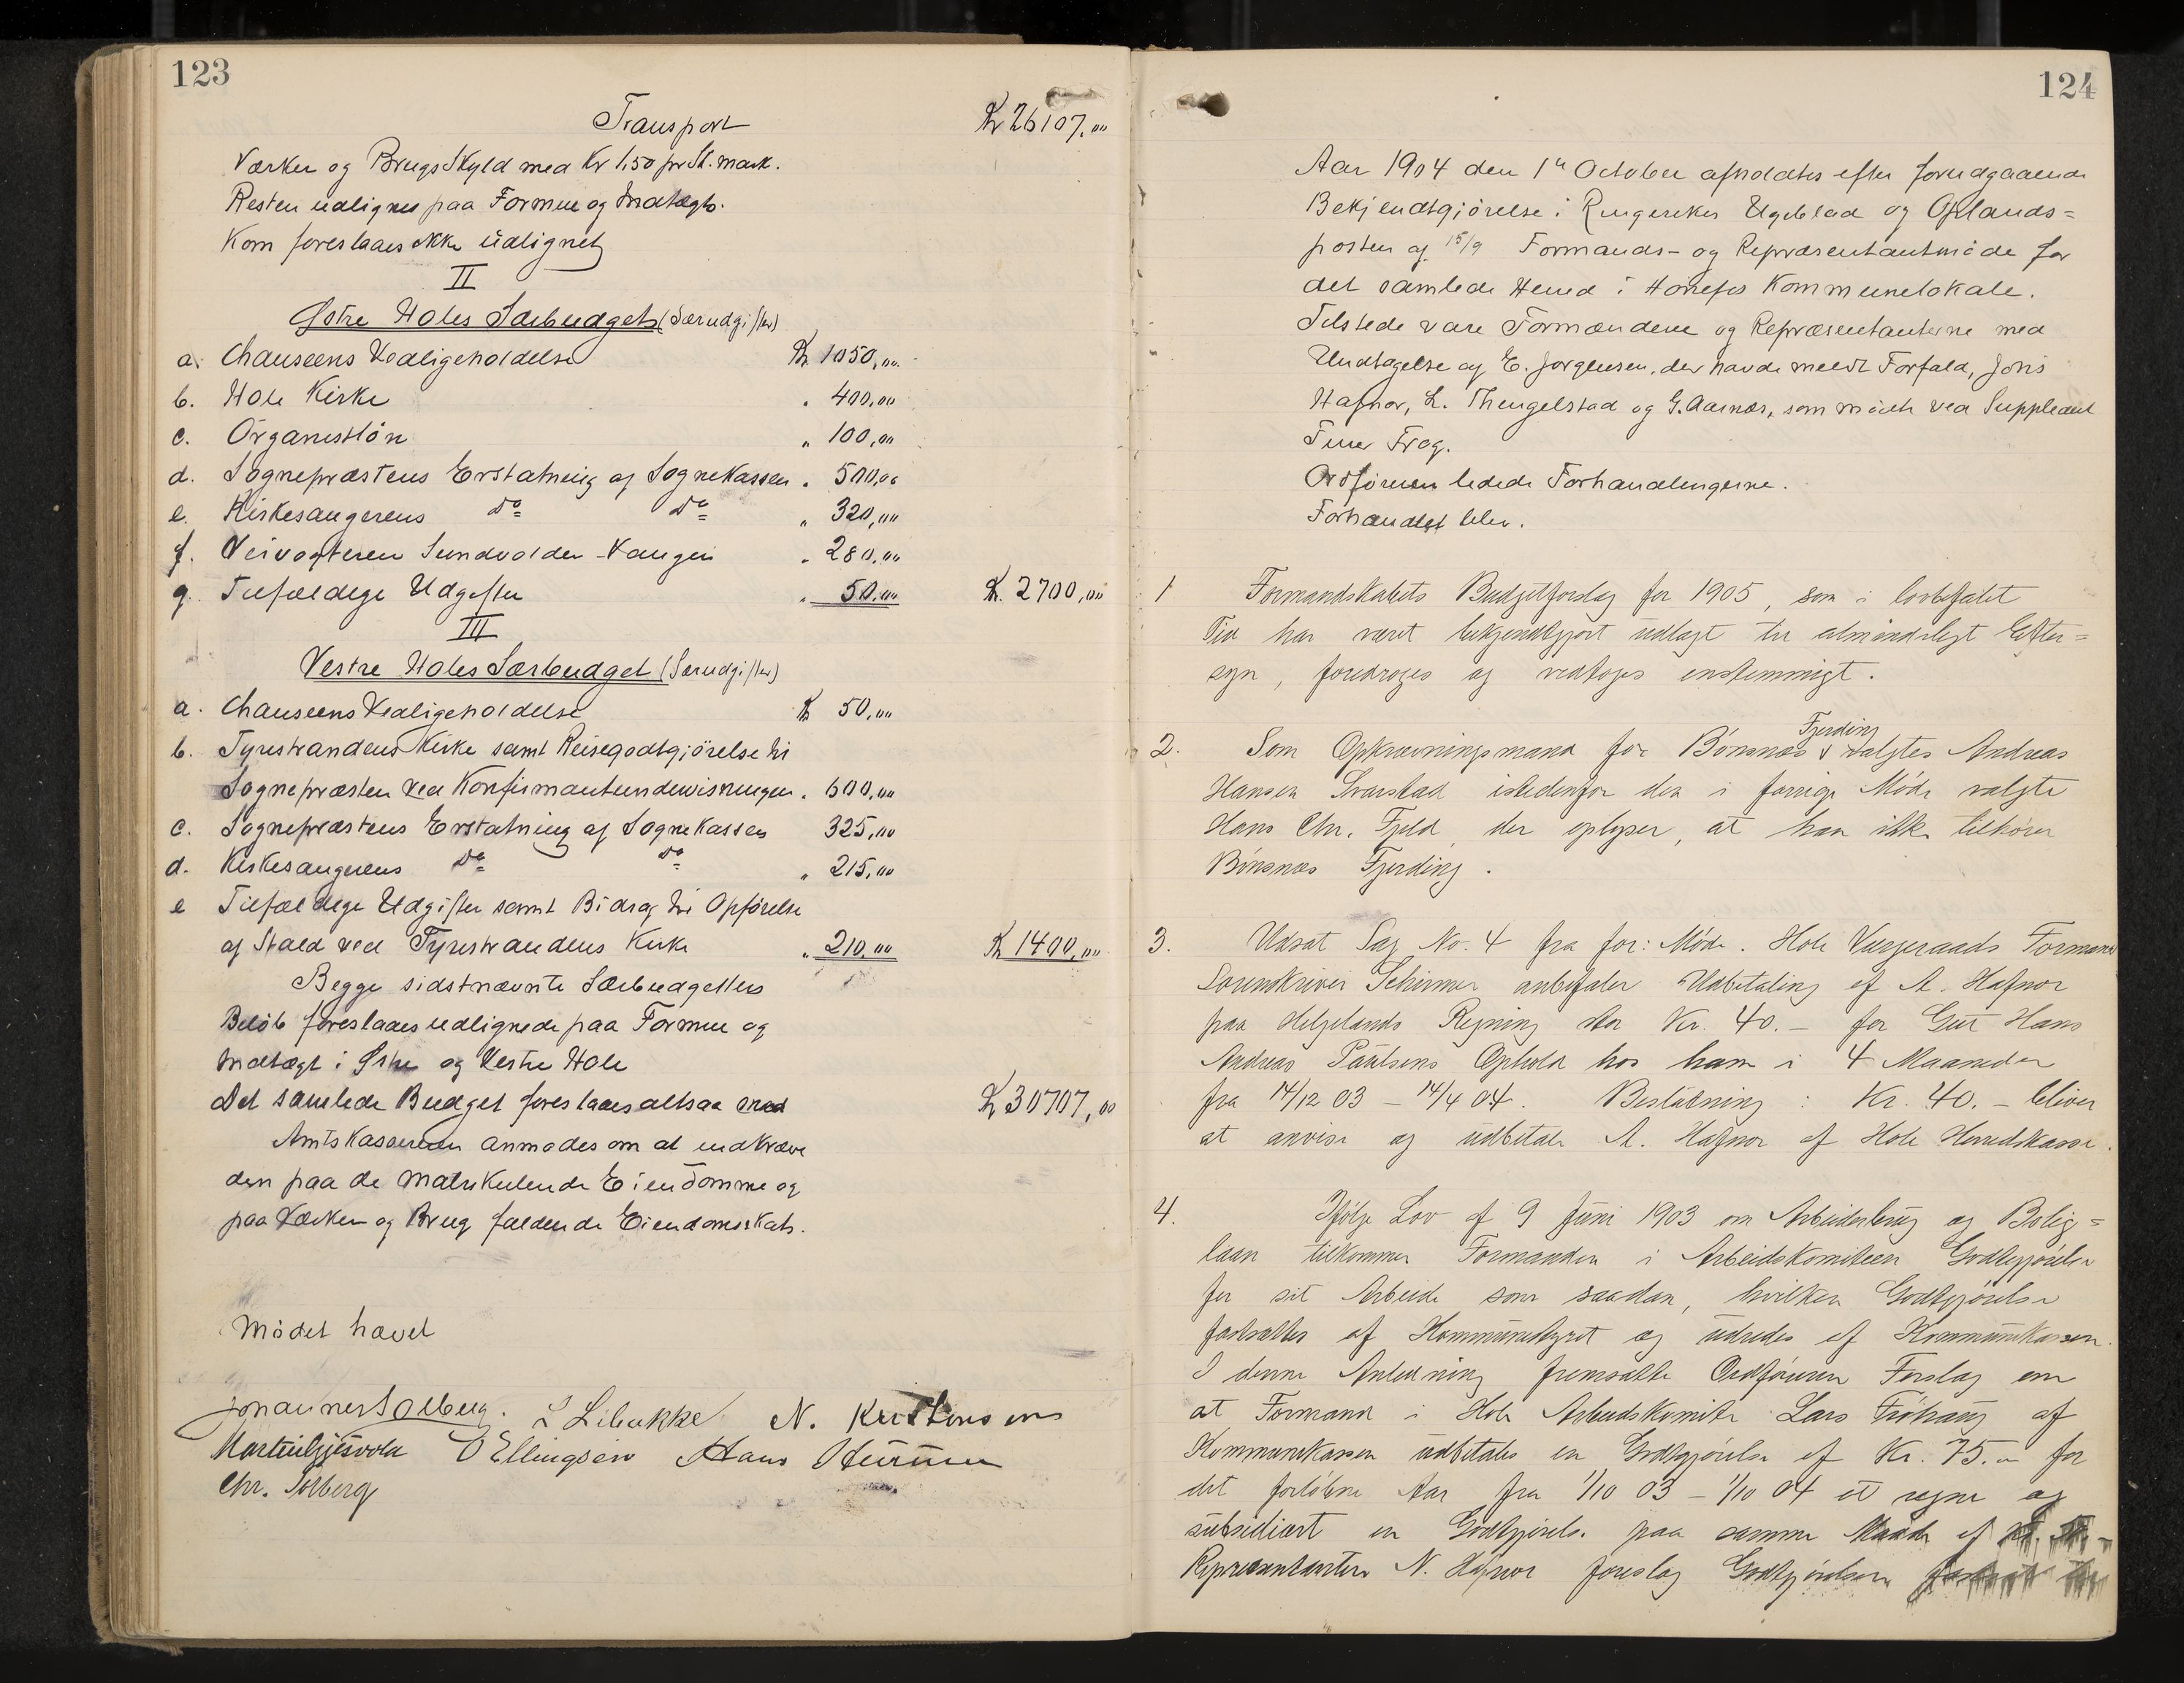 123
Transport Kr 26107,00
Værker og BrugsSkyld med Kr 1,50 pr Sk. mark.
Resten udlignes paa Formue og Indtægt.
Korn foreslaaes ikke udlignet
II
Østre Holes Særbudget (Særudgifter)
a. Chauseens Vedligeholdelse Kr 1050,00
b. Hole Kirke " 400,00
c. Organistløn " 100,00
d. Sognepræstens Erstatning af SogneKassen " 500,00
e. Kirkesangerens do do " 320,00
f. Veivogteren Sundvolden - Vangen " 280,00
g. Tilfældige Udgifter " 50,00 Kr. 2700,00
III
Vestre Holes Særbudget (Særudgifter)
a. Chauseens Vedligeholdelse Kr 50,00
b. Tyristrandens Kirke samt Reisegodtgjörelse til
Sognepræsten ved Konfirmantundervisningen " 600,00
c. Sognepræstens Erstatning af SogneKassen 325,00
d. Kirkesangerens do do " 215,00
e Tilfældige Udgifter samt Bidrag til Opförelse
af Stald ved Tyristrandens Kirke " 210,00 Kr 1400,00
Begge sidstnævnte Særbudgetters
Beløb foreslaaes udlignede paa Formue og
Indtægt i Østre og Vestre Hole
Det samlede Budget foreslaaes altsaa med Kr 30707,00
Amtskassereren anmodes om at indkræve
den paa de matrikulerede Eiendomme og
paa Værker og Brug faldende Eiendomsskat.
Mödet hævet
Johannes Solberg. L Libakke N. Kristensens
Martin Gjesvold O Ellingsen Hans
Chr. Solberg
124
Aar 1904 den 1ste October afholdtes efter forudgaaende
Bekjendtgjörelse i Ringerikes Ugeblad og Oplands=
posten af 15/9 Formands- og Repræsentantmöde for
det samlede Herred i Hönefos Kommunelokale.
Tilstede vare Formændene og Repræsentanterne med
Undtagelse af E. Jørgensen, der havde meldt Forfald, Jöns
Hafnor, L. Thengelstad og G. Aasnæs, som mödte ved Suppleant
Frog.
Ordföreren ledede Forhandlingerne.
Forhandlet blev.
1 Formandskabets Budgetforslag for 1905, som i lovbefalet
Tid har været bekjendtgjort udlagt til almindeligt Efter=
syn, foredroges og vedtoges enstemmigt.
2. Som Opkrævningsmand for Bönsnæs Fjerding valgtes Andreas
Hansen Svarstad istedenfor den i forrige Möde valgte
Hans Chr. Fjeld, der oplyser, at han ikke tilhörer
Bönsnæs Fjerding.
3. Udsat Sag No. 4 fra for: Möde. Hole Værgeraads Formand
Sorenskriver Schirmer anbefaler Udbetaling af A. Hafnor
paa Helgelands Regning stor Kr. 40.- for Gut Hans
Andreas Paulsens Ophold hos ham i 4 Maaneder
fra 14/12 03 - 14/4 04. Beslutning: Kr. 40.- bliver
at anvise og udbetale A. Hafnor af Hole Herredskasse.
4. Ifølge Lov af 9 Juni 1903 om Arbeiderbrug og Bolig=
laan tilkommer Formanden i Arbeidskomiteen Godtgjörelse
for sit Arbeide som saadan, hvilken Godtgjörelse
fastsættes af Kommunestyret og udredes af Kommunekassen.
I denne Anledning fremsatte Ordföreren Forslag om
at Formand i Hole Arbeidskomite Lars Fröhaug af
Kommunekassen udbetales en Godtgjörelse af Kr. 75.- for
det forløbne Aar fra 1/10 03 - 1/10 04 at regne og
subsidiært en Godtgjörelse paa samme Maade af
Repræsentanten N. Hafnor foreslog Godtgjörelsen